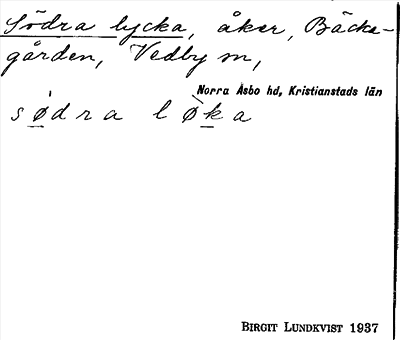 Södra lycka, åker, Bäcka-
gården, Vedby sn,
Norra Åsbo hd, Kristianstads län
sødra løka
BIRGIT LUNDKVIST 1937